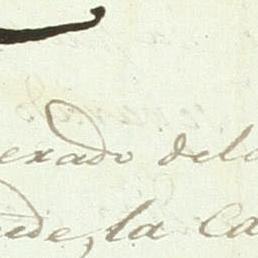 exado dela
ede, la Ca